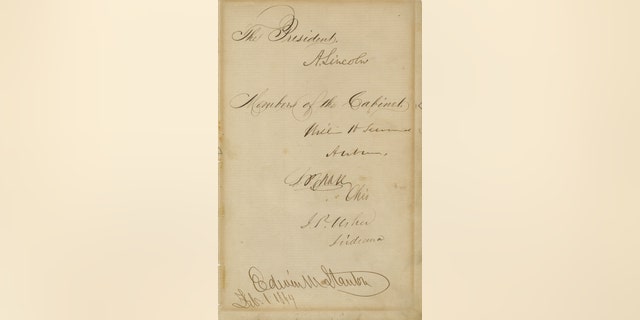 The President,
A. Lincoln
Members of the Cabinet
Will H Sew
Auburn,
S P Chase
Ohio
J. P. Usher
Indiana
Edwin M Stanton
Feb. 1 1864